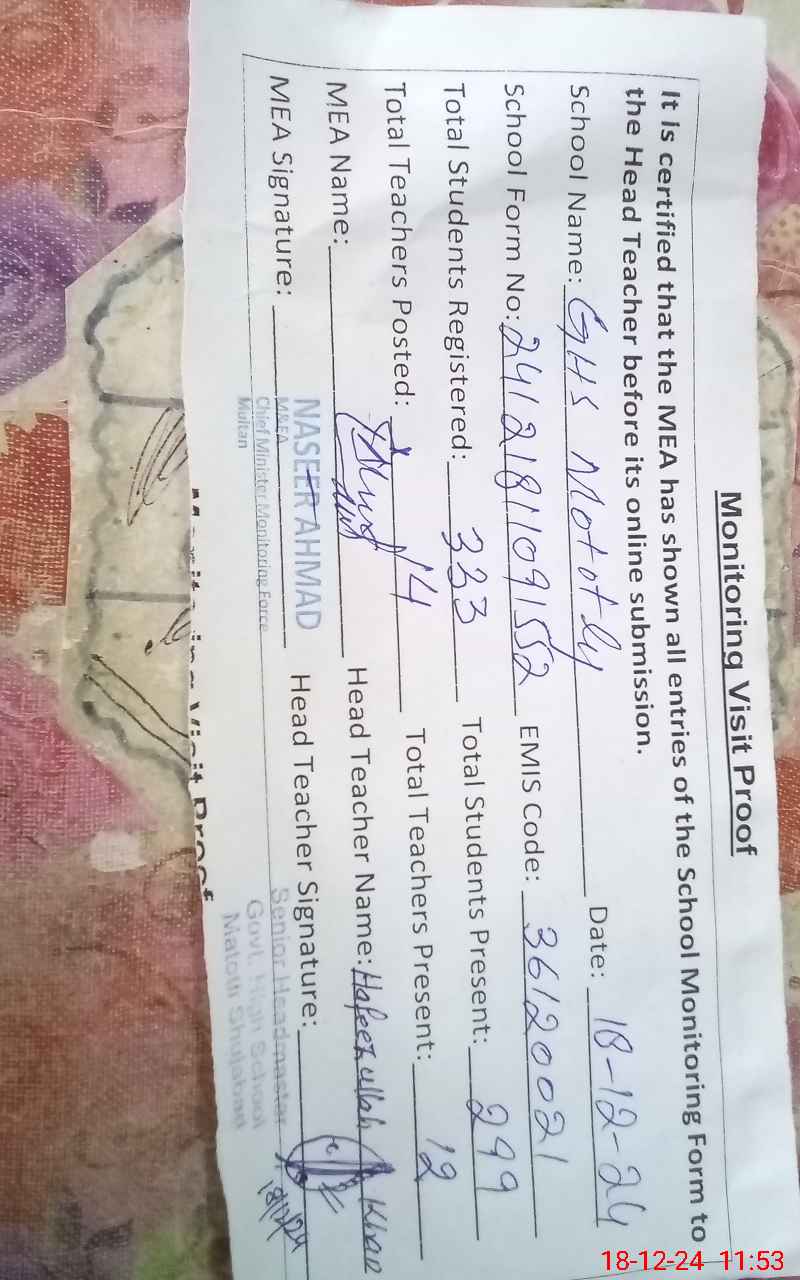 Monitoring Visit Proof
It is certified that the MEA has shown all entries of the School Monitoring Form to
the Head Teacher before its online submission.
School Name: GHS Matotly Date: 18-12-24
School Form No: 24121811091552 EMIS Code: 36120021
Total Students Registered: 333 Total Students Present: 299
Total Teachers Posted: 14 Total Teachers Present: 12
MEA Name: Head Teacher Name: Hafeez ullah Khan
MEA Signature: NASEER AHMAD Head Teacher Signature:
M&EA
Chief Minister Monitoring Force
Multan
Senior Headmaster
Govt. High School
Matotli Shujabad
18/12/24
Monitoring Visit Proof
18-12-24 11:53